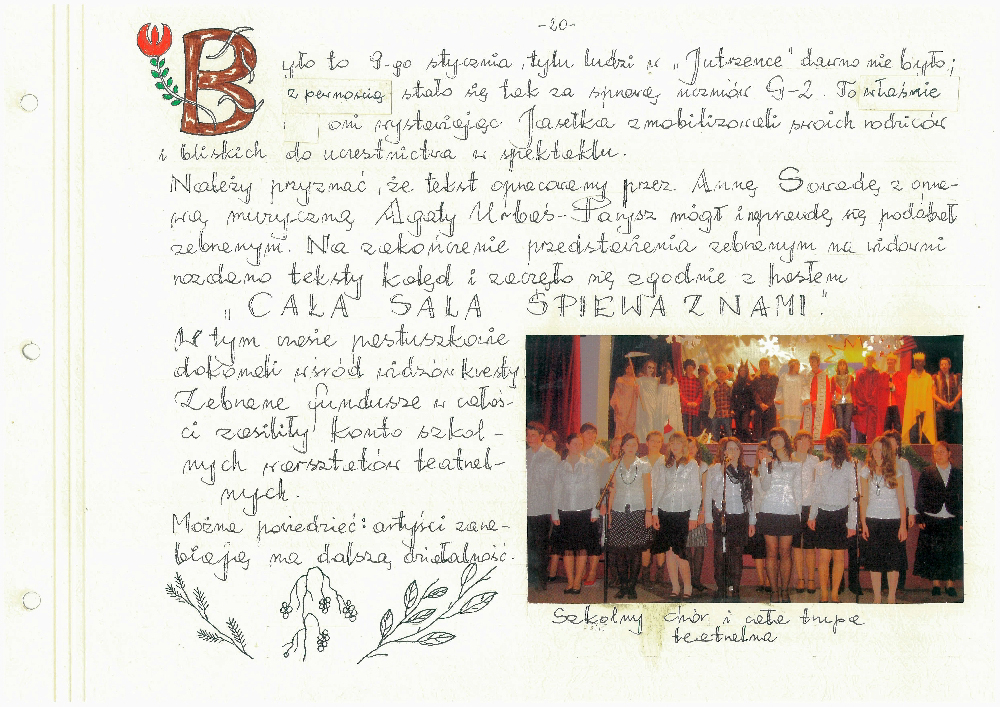 -20-
Było to 9-go stycznia, tylu ludzi w „Jutrzence" dawno nie było;
z pewnością stało się tak za sprawą uczniów G-2. To właśnie
oni wystawiając Jasełka zmobilizowali swoich rodziców
i bliskich do uczestnictwa w spektaklu.
Należy przyznać, że tekst opracowany przez Annę Sowadę z opra-
wą muzyczną Agaty Urbaś-Parysz mógł i naprawdę się podobał
zebranym. Na zakończenie przedstawienia zebranym na widowni
rozdano teksty kolęd i zaczęło się zgodnie z hasłem
„CAŁA SALA ŚPIEWA Z NAMI".
W tym czasie pastuszkowie
dokonali wśród widzów kwesty.
Zebrane fundusze w całoś-
ci zasiliły konto szkol-
nych warsztatów teatral-
nych.
Można powiedzieć: artyści zara-
biają na dalszą działalność.
Szkolny chór i cała trupa
teatralna